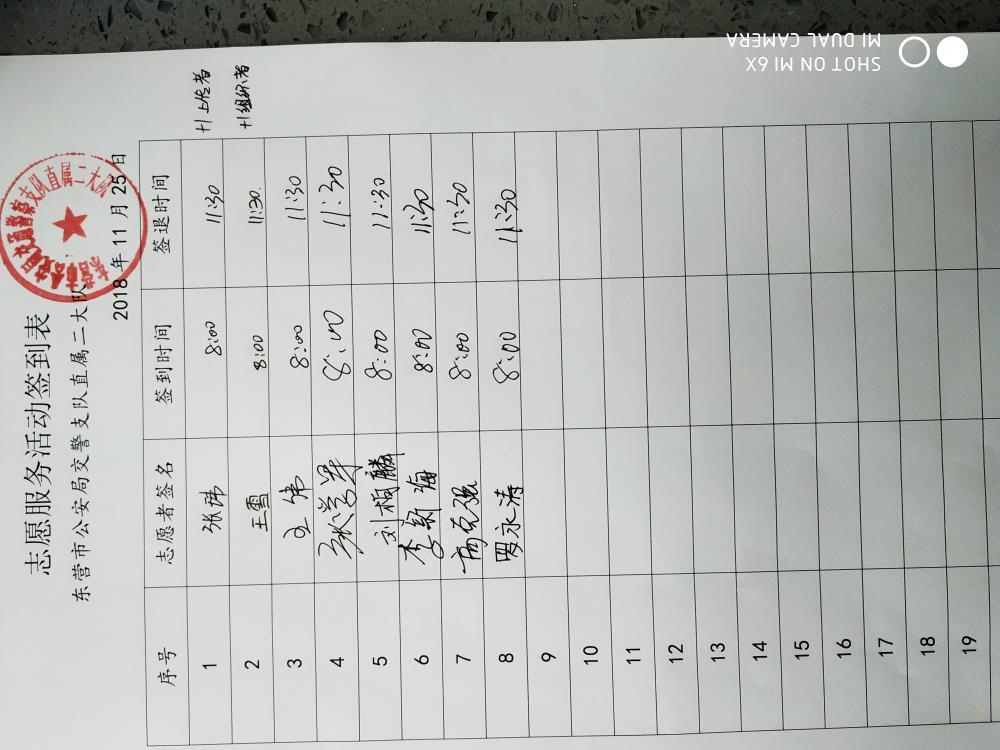 志愿服务活动签到表
东营市公安局交警支队直属二大队
2018 年 11 月 25 日
序号 志愿者签名 签到时间 签退时间
1 张玮 8:00 11:30 +1上传者
2 王雪 8:00 11:30. +1组织者
3 王伟 8:00 11:30
4 8:00 11:30
5 刘相麟 8:00 11:30
6 李新海 8:00 11:30
7 高克强 8:00 11:30
8 罗永涛 8:00 11:30
9
10
11
12
13
14
15
16
17
18
19
SHOT ON MI 6X
MI DUAL CAMERA